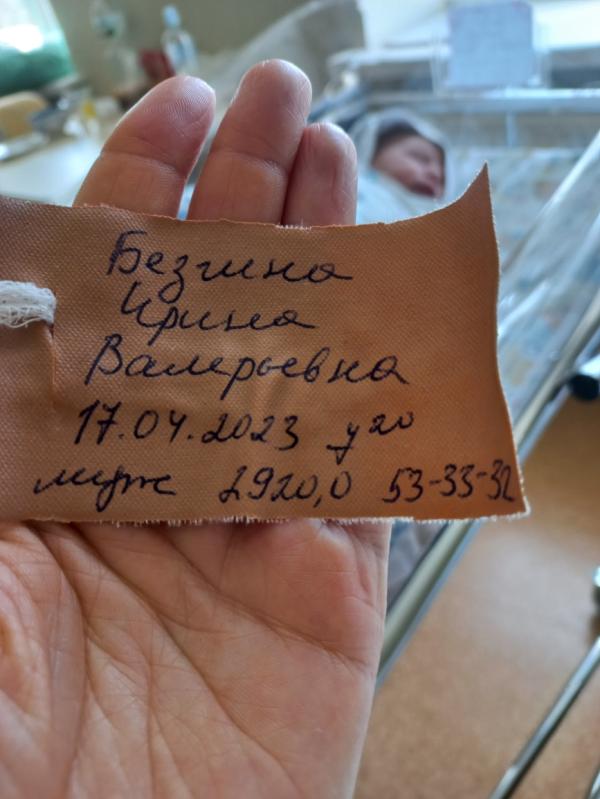 Безгина
Ирина
Валерьевна
17.04.2023 у 20
муж 2920,0 53-33-32